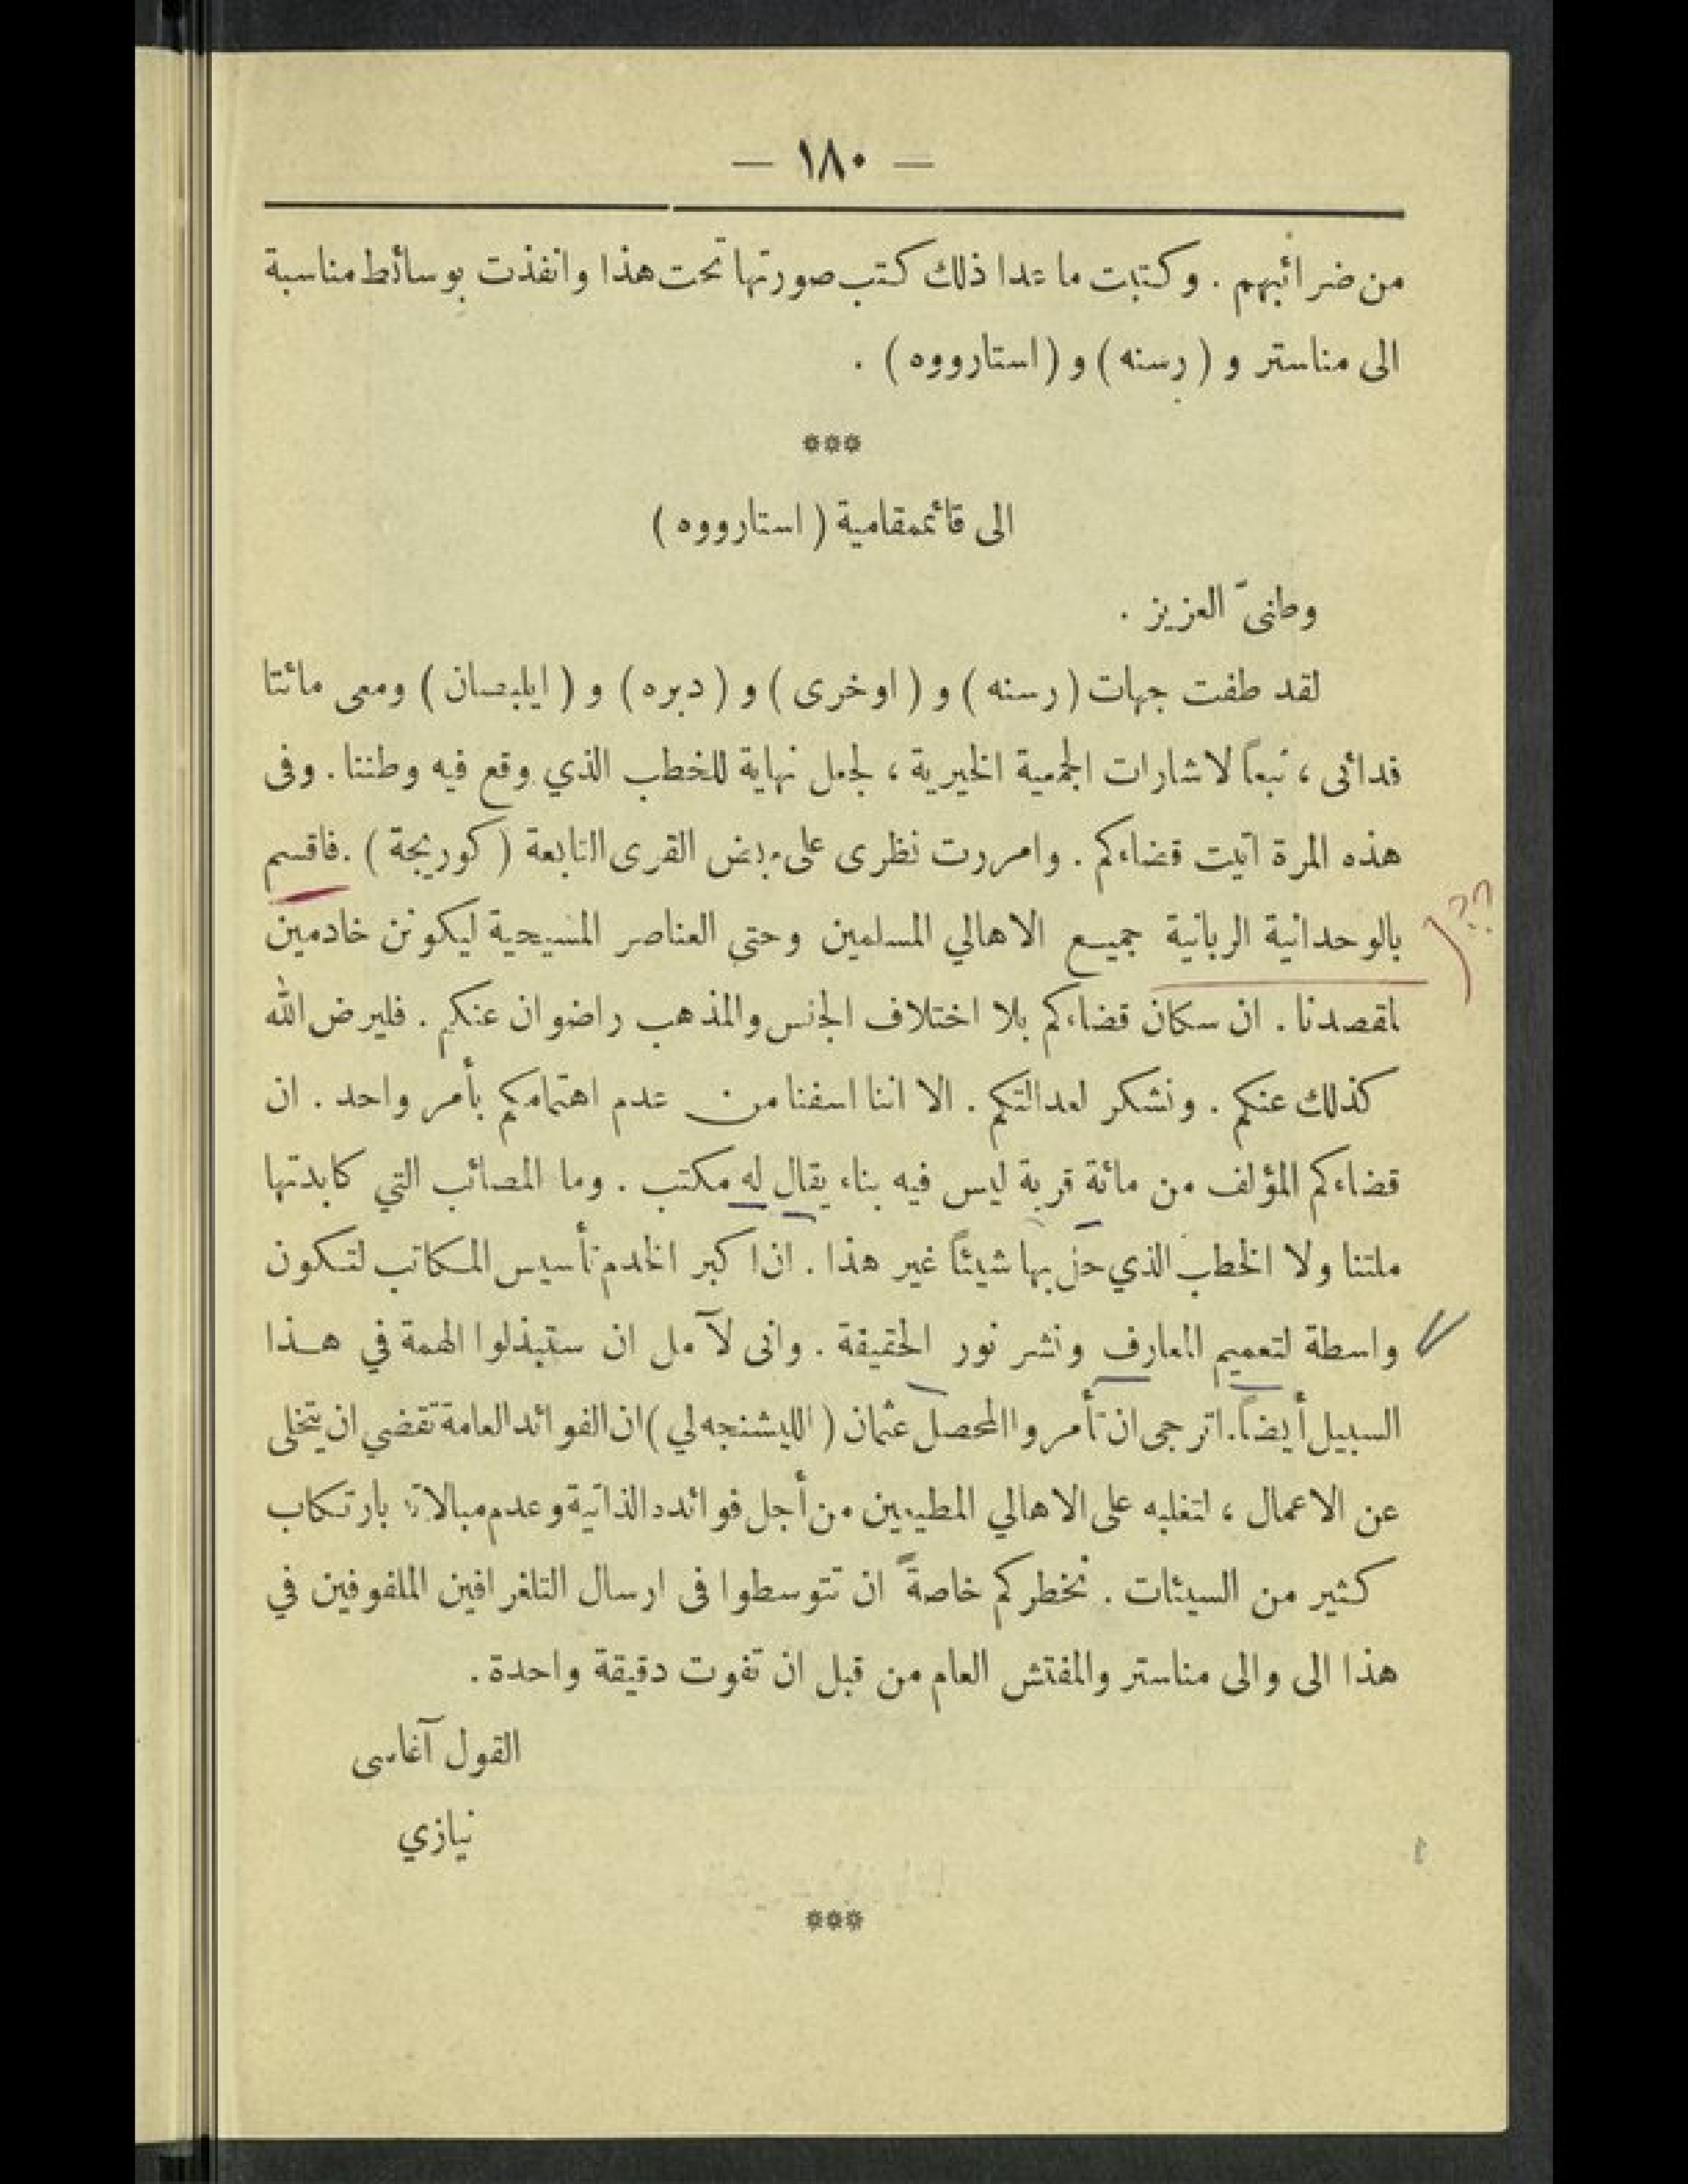 — ١٨٠ —
من ضرائبهم . وكتبت ما عدا ذلك كتب صورتها تحت هذا وانفذت بوسائط مناسبة
الى مناستر و ( رسنه ) و ( استارووه ) .
***
الى قائممقامية ( استارووه )
وطنىّ العزيز .
لقد طفت جهات ( رسنه ) و ( اوخرى ) و ( دبره ) و ( ايلبصان ) ومعى مائتا
فدائى ، تبعاً لاشارات الجمعية الخيرية ، لجعل نهاية للخطب الذي وقع فيه وطننا . وفى
هذه المرة آتيت قضاءكم . وامررت نظرى على بعض القرى التابعة ( كوريجة ) . فاقسم
بالوحدانية الربانية جميع الاهالي المسلمين وحتى العناصر المسيحية ليكونن خادمين
لمقصدنا . ان سكان قضاءكم بلا اختلاف الجنس والمذهب راضوان عنكم . فليرض الله
كذلك عنكم . ونشكر لعدالتكم . الا اننا اسفنا من عدم اهتمامكم بأمر واحد . ان
قضاءكم المؤلف من مائة قرية ليس فيه بناء يقال له مكتب . وما المصائب التي كابدتها
ملتنا ولا الخطب الذي حل بها شيئاً غير هذا . ان اكبر الخدم تأسيس المكاتب لتكون
واسطة لتعميم المعارف ونشر نور الحقيقة . وانى لآمل ان ستبذلوا الهمة في هذا
السبيل أيضاً. اترجى ان تأمروا المحصل عثمان ( الليشنجه لي ) ان الفوائد العامة تقضي ان يتخلى
عن الاعمال ، لتغلبه على الاهالي المطيعين من أجل فوائده الذاتية وعدم مبالاته بارتكاب
كثير من السيئات . نخطركم خاصةً ان تتوسطوا فى ارسال التلغرافين الملفوفين في
هذا الى والى مناستر والمفتش العام من قبل ان تفوت دقيقة واحدة .
القول آغاسى
نيازي
***